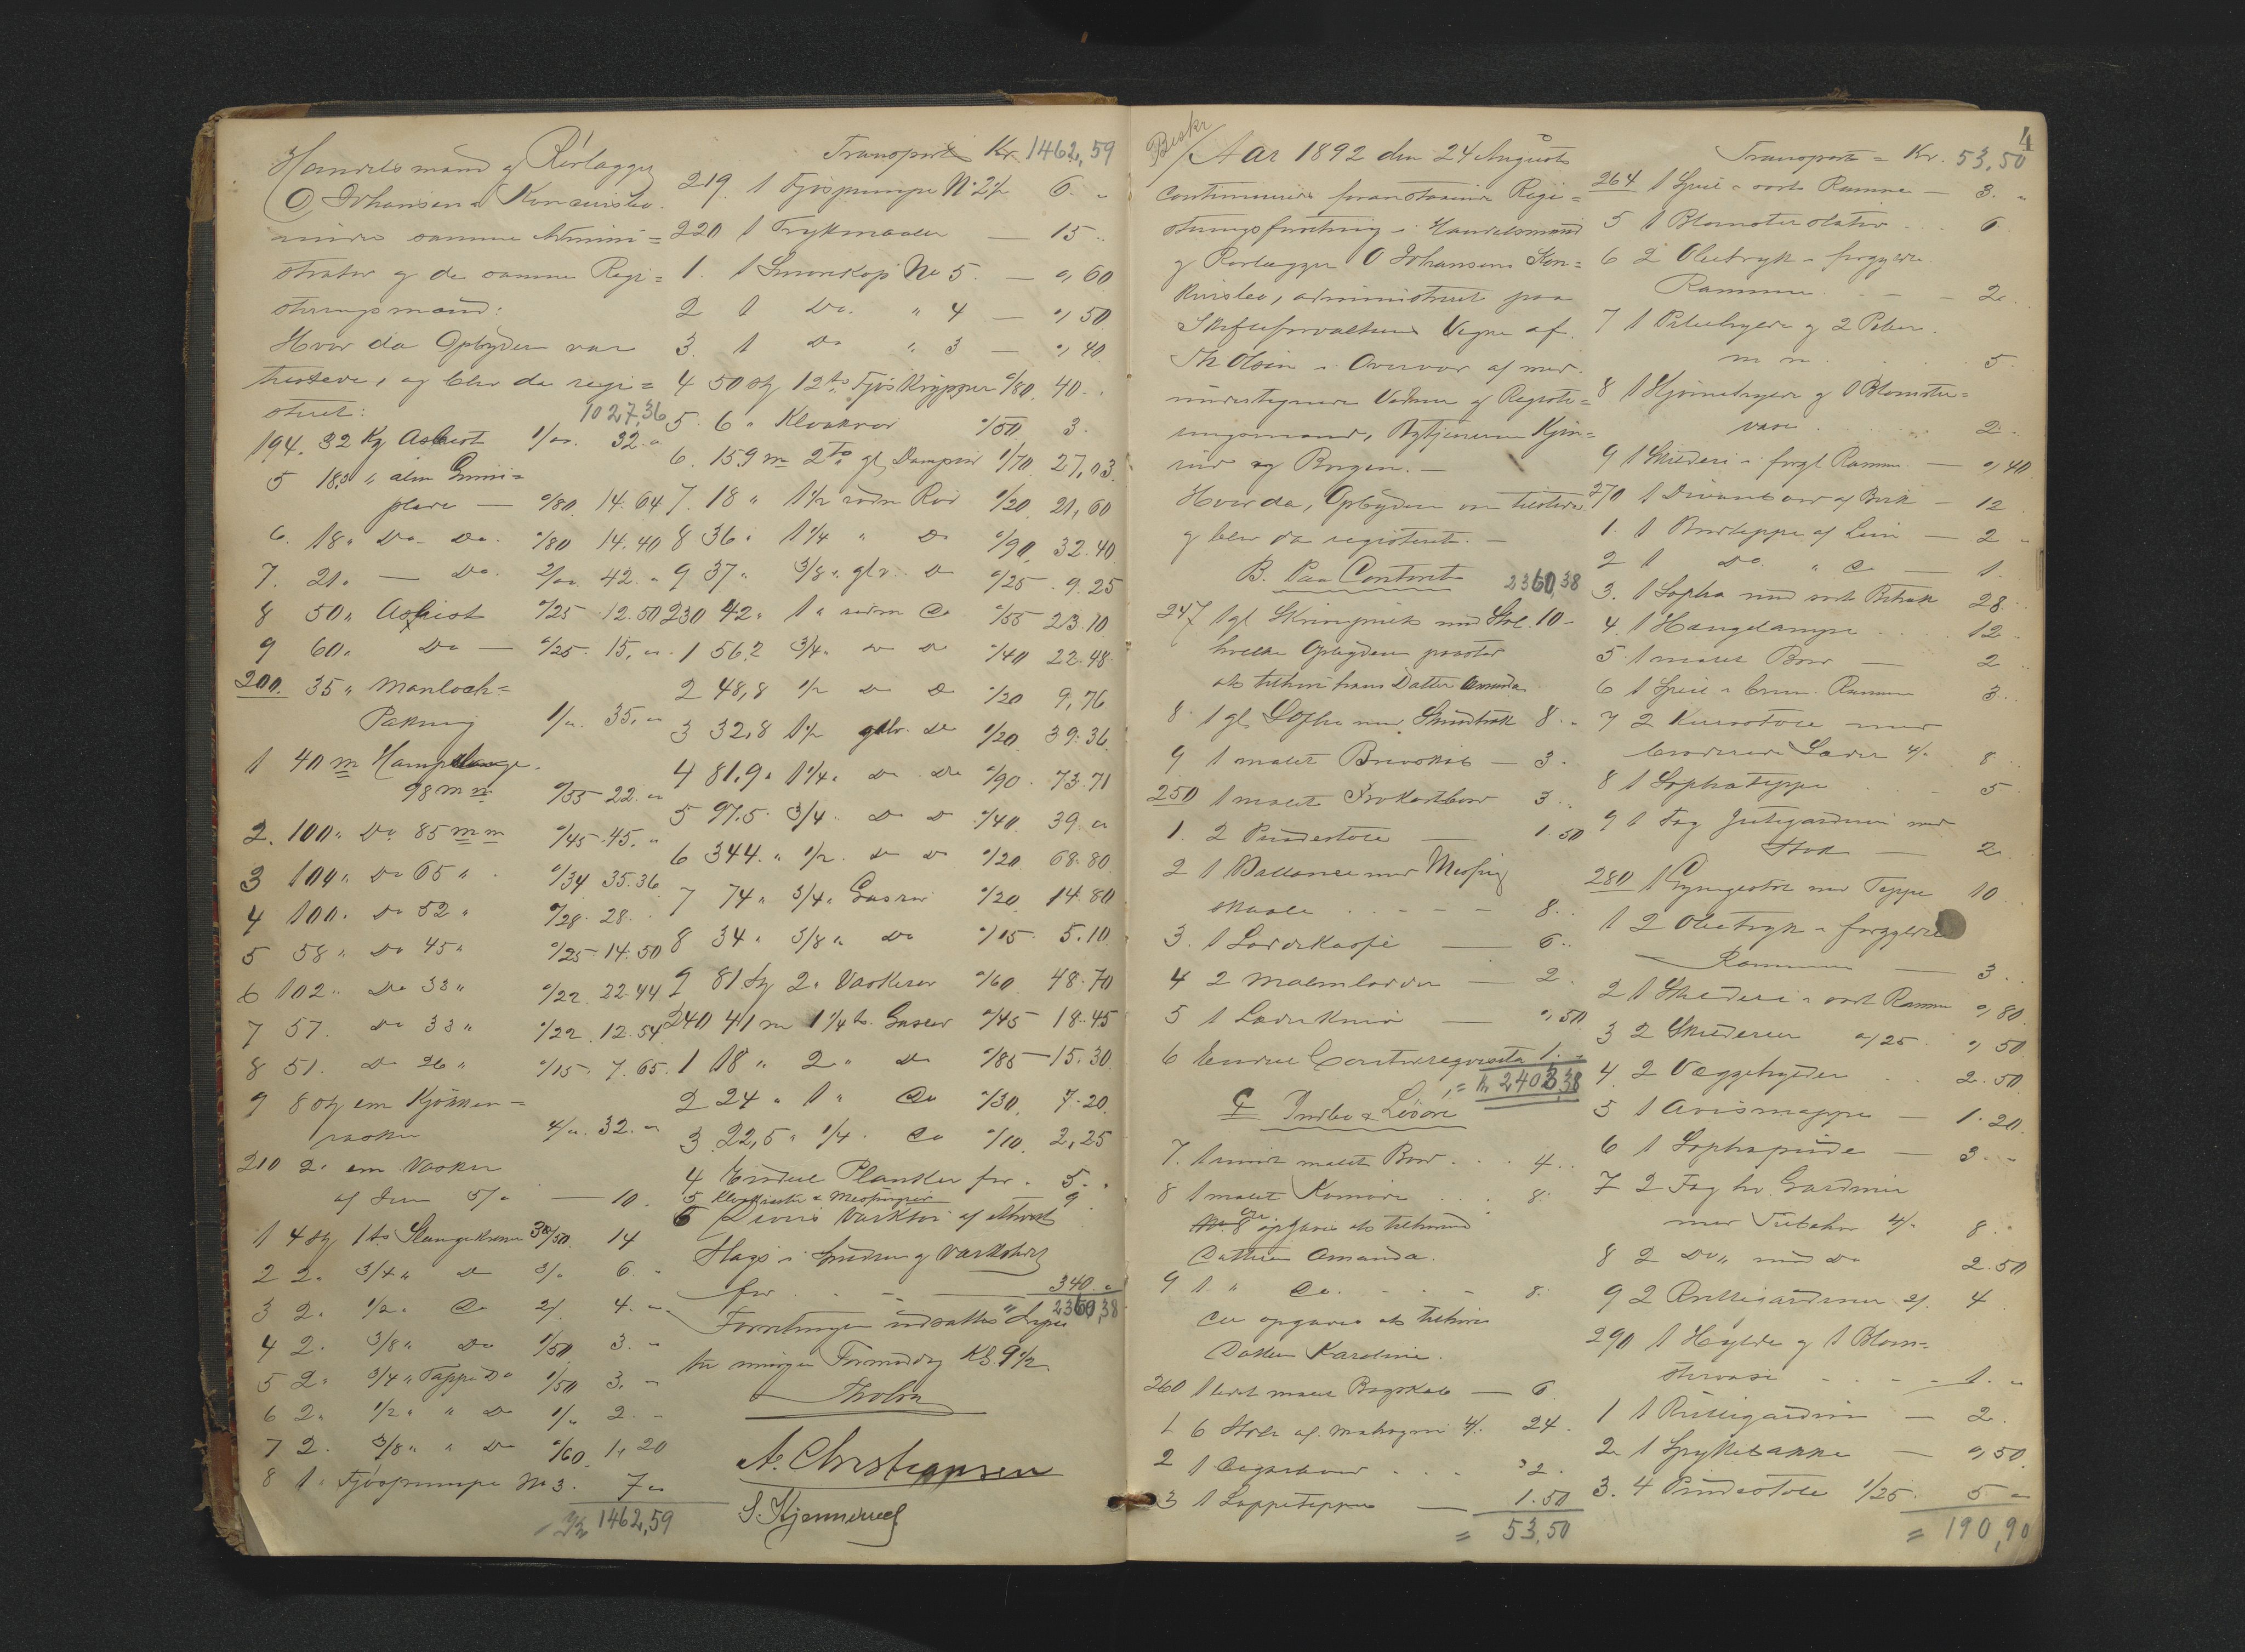 Handelsmand og Rørlægger
O, Johansens Konkursbo.
under samme Admini=
strator og de samme Regi=
streringsmænd:
Hvor da Opbyderen var
tilstede, og blev da regi=
streret:
1027,36
194. 32 Kg Asbest 1/00. 32. "
5 18,3 " alm Gummi=
plade — "/80. 14.64
6. 18 " Do Do. "/80 14.40
7. 21 " — Do. 2/00. 42. "
8 50 " Asbest "/25 12.50
9 60 " Do — "/25. 15, "
200. 35 " Manloch=
Pakning 1/". 35. "
1 40 m Hampslange
98 mm "/55 22. "
2. 100 " Do 85 mm "/45 45. "
3 104 " Do 65 " "/34 35.36
4 100. Do 52 " "/28. 28.
5 58 " Do 45 " "/25 14.50
6 102 " Do 33 " "/22 22.44
7 57. Do 33 " "/22. 12.54
8 51. Do 26 " "/15. 7.65.
9 8 stk em Kjøkken=
vasker 4/". 32. "
210 2. em Vasker
af Jern 5/" — 10.
1 4 stk 1 to Slangekraner 3/50. 14
2 2. 3/4 " Do 3/" 6. "
3 2. 1/2 " Do 2/. 4. "
4 2. 3/8 " Do 1/50 3. "
5 2. 3/4 " Tappe Do 1/50 3. "
6 2. 1/2 " " Do 1/" 2. "
7 2. 3/8 " " Do "/60. 1,20
8 1. Fjøspumpe No 3. 7 "
1462,59
Transport Kr. 1462,59
219. 1 Fjøspumpe No 2 1/2 6. "
220 1 Trykmaaler — 15 ..
1. 1 Smørekop No 5. — ",60
2 1 Do. " 4 — ",50
3. 1 Do " 3 — ",40
4 50 stk 12 to Fjøskrypper "/80. 40..
5. 6 " Kloakrør "/50 3.
6. 159 m 2 to gl Damprør "/70 27,03
7. 18 " 1 1/2 Rør 1/20 21,60
8 36 " 1 1/4 " Do "/90 32.40
9 37 " 3/8 " glv. Do "/25. 9.25
230 42 " 1 " Do "/55 23.10
1 56,2 3/4 " Do Do "/40 22.48
2 48,8 1/2 Do Do "/20 9,76
3 32,8 1 1/2 galv. Do 1/20. 39.36
4 81,9 " 1 1/4 " Do Do "/90. 73.71
5 97.5. 3/4. Do Do "/40. 39. "
6 344. " 1/2. Do Do "/20 68.80
7 74 " 3/4 " Gasrør "/20 14.80
8 34 " 3/8 " Do "/15. 5.10
9 81 stk 2 " "/60 48.70
240 41 m 1 1/4 to. Gasrør "/45 18.45
1 18 " 2 " Do "/85 — 15.30
2 24 " 1 " Do "/30. 7.20
3 22,5 " 1/4. Do "/10. 2,25
4 Endel Planker for. 5. "
9
6 Divers Værktøi af ethvert
Slags i Smedien og Værksted
for 340 "
2360,38
Forretningen udsattes derpaa
til imorgen Formiddag Kl 9 1/2.
Th Olsen
A. Christiansen
S. Kjennerud
Beskr
4
Aar 1892 den 24 August
continueredes foranstaaende Regi=
streringsforretning i Handelsmand
og Rørlægger O Johansens Kon=
kursbo, administreret paa
Skifteforvalterens Vegne af
Th Olsen i Overvær af med
undertegnede Vidner og Registre=
ringsmænd, Kjen=
nerud og Borgen. —
Hvor da, Opbyderen var tilstede
og blev da registreret. —
B. Paa Contoret 2360,38
247 1 gl Skrivepult med Stol. 10 —
hvilke Opbyderen paastod
at tilhøre hans Datter Amanda
8. 1 gl. Sopha med Skindtræk 8. "
9 1 malet Brevskab — 3.
250 1 malet Bord 3 ..
1. 2 Pindestole — 1.50
2 1 Ballance med Messing
skaale . . — — 8..
3. 1 — 6..
4 2 Malmlodder — 2.
5 1 — ",50
6 Endel Contorrequisita 1. "
= Kr. 2402,38
C Indbo & Løsøre
7. 1 rundt malet Bord . . . 4..
8 1 malet Komode . . . 8.
No 8 opgaves at tilhøre
Datteren Amanda.
9 1 " Do. . . — . 8.
Do opgaves at tilhøre
Datter Karoline.
260 1 malet Bogskab — 6
1 6 Stole af Mahogni 4/. 24.
2 1 Cigarbord . . . 2.
3 1 Lappeteppe — 1.50
= 53,50
Transport = Kr. 53,50
264 1 Speil i sort Ramme — 3. "
5 1 Blomsterstativ . . 6
6 2 Olietryk i forgyldte
Rammer . . — — 2..
7 1 Pibehylde og 2 Piber
m m. 5.
8 1 Hjørnehylde og 1 Blomster=
vase. 2..
9 1 Skilderi i forgl Ramme — ",40
270 1 Divansbord af Birk — 12
1. 1 Bordteppe af Lin — 2 "
2 1 Do " Do — 1.
3. 1 Sopha med sort Betræk 28.
4. 1 Hængelampe . . . 12..
5 1 malet Bord — 2..
6 1 Speil i brun Ramme 3..
7 2 Kurvstole med
broderede Sæder 4/. 8..
8 1 Sophateppe . — 5.
9 1 Fag Jutegardiner med
Stok — 2.
280 1 Gyngestol med Teppe 10..
1 2 Olietryk i forgyldte
Rammer — 3..
2 1 Skilderi i sort Ramme ",80
3 2 Skilderier "/25. ",50
4. 2 Væggehylder . 2.50
5 1 Avismappe — 1.20
6 1 Sophapude — 3. "
7 2 Fag hv. Gardiner
med Tilbehør 4/. 8..
8 2 Do " med Do 2.50
9 2 Rullegardiner 2/. 4.
290 1 Hylde og 1 Blom=
stervase — — — 1. "
1 1 Rullegardin — 2.
2 1 Spyttebakke — ",50
3. 4 Pindestole 1/25. 5 "
= 190,90